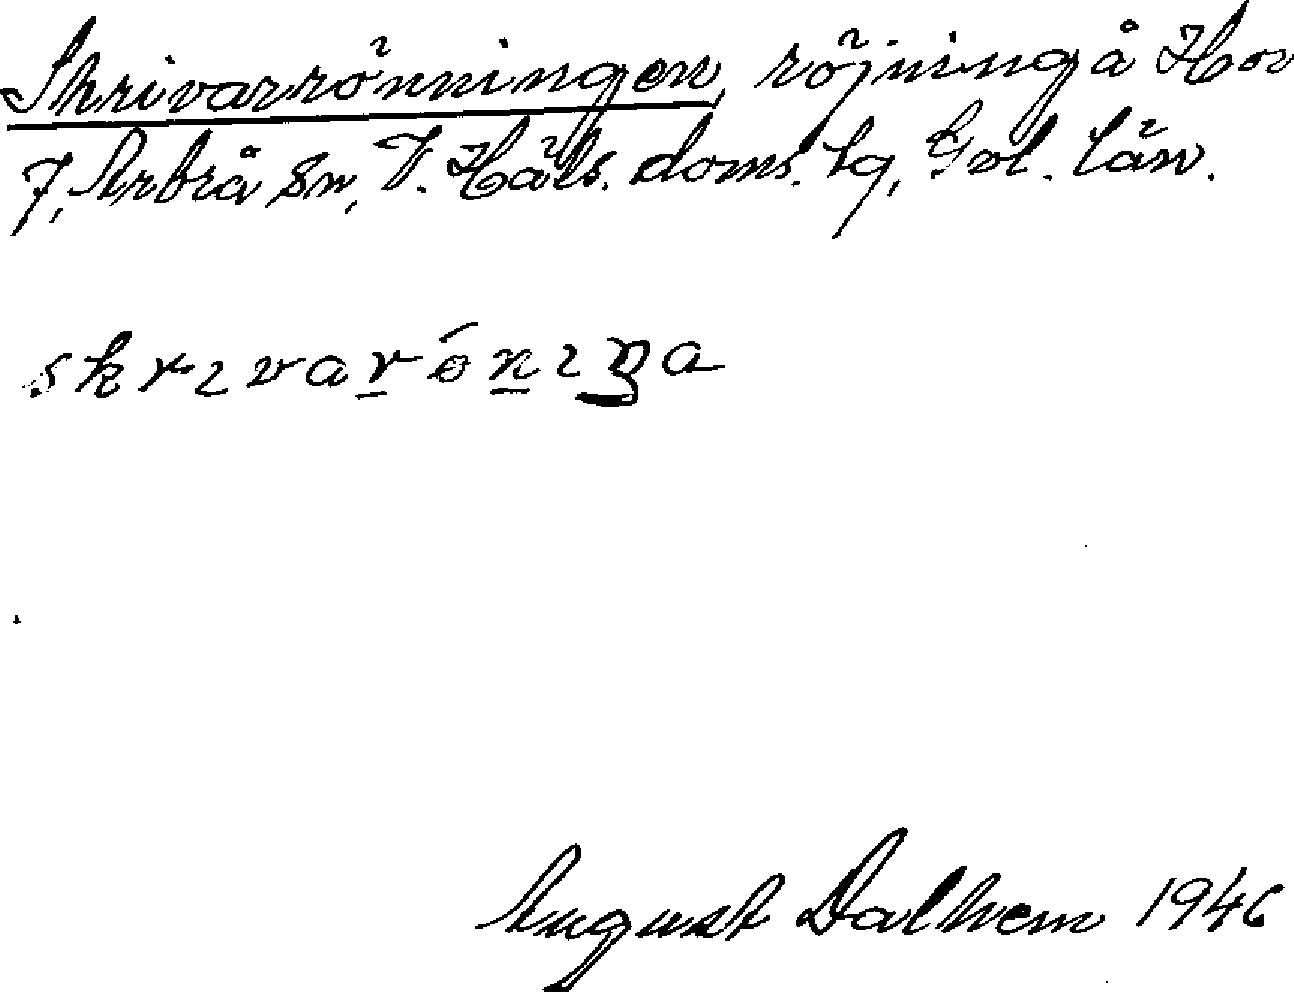 Skrivarrönningen, röjning å Hov
7, Arbrå sn, V. Häls. doms. lg, Gvl. län.
skrɩvarónɩŋa
August Dalhem 1946